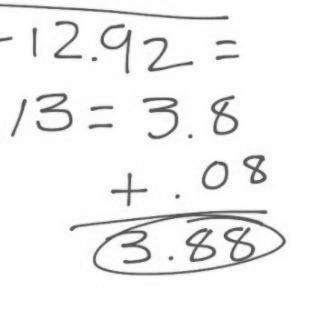 -12.92 =
13 = 3.8
+ .08
3.88